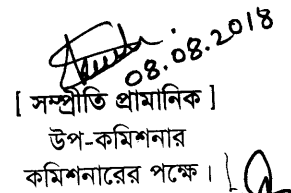 08.08.2018
[ সম্প্রীতি প্রামানিক ]
উপ-কমিশনার
কমিশনারের পক্ষে।